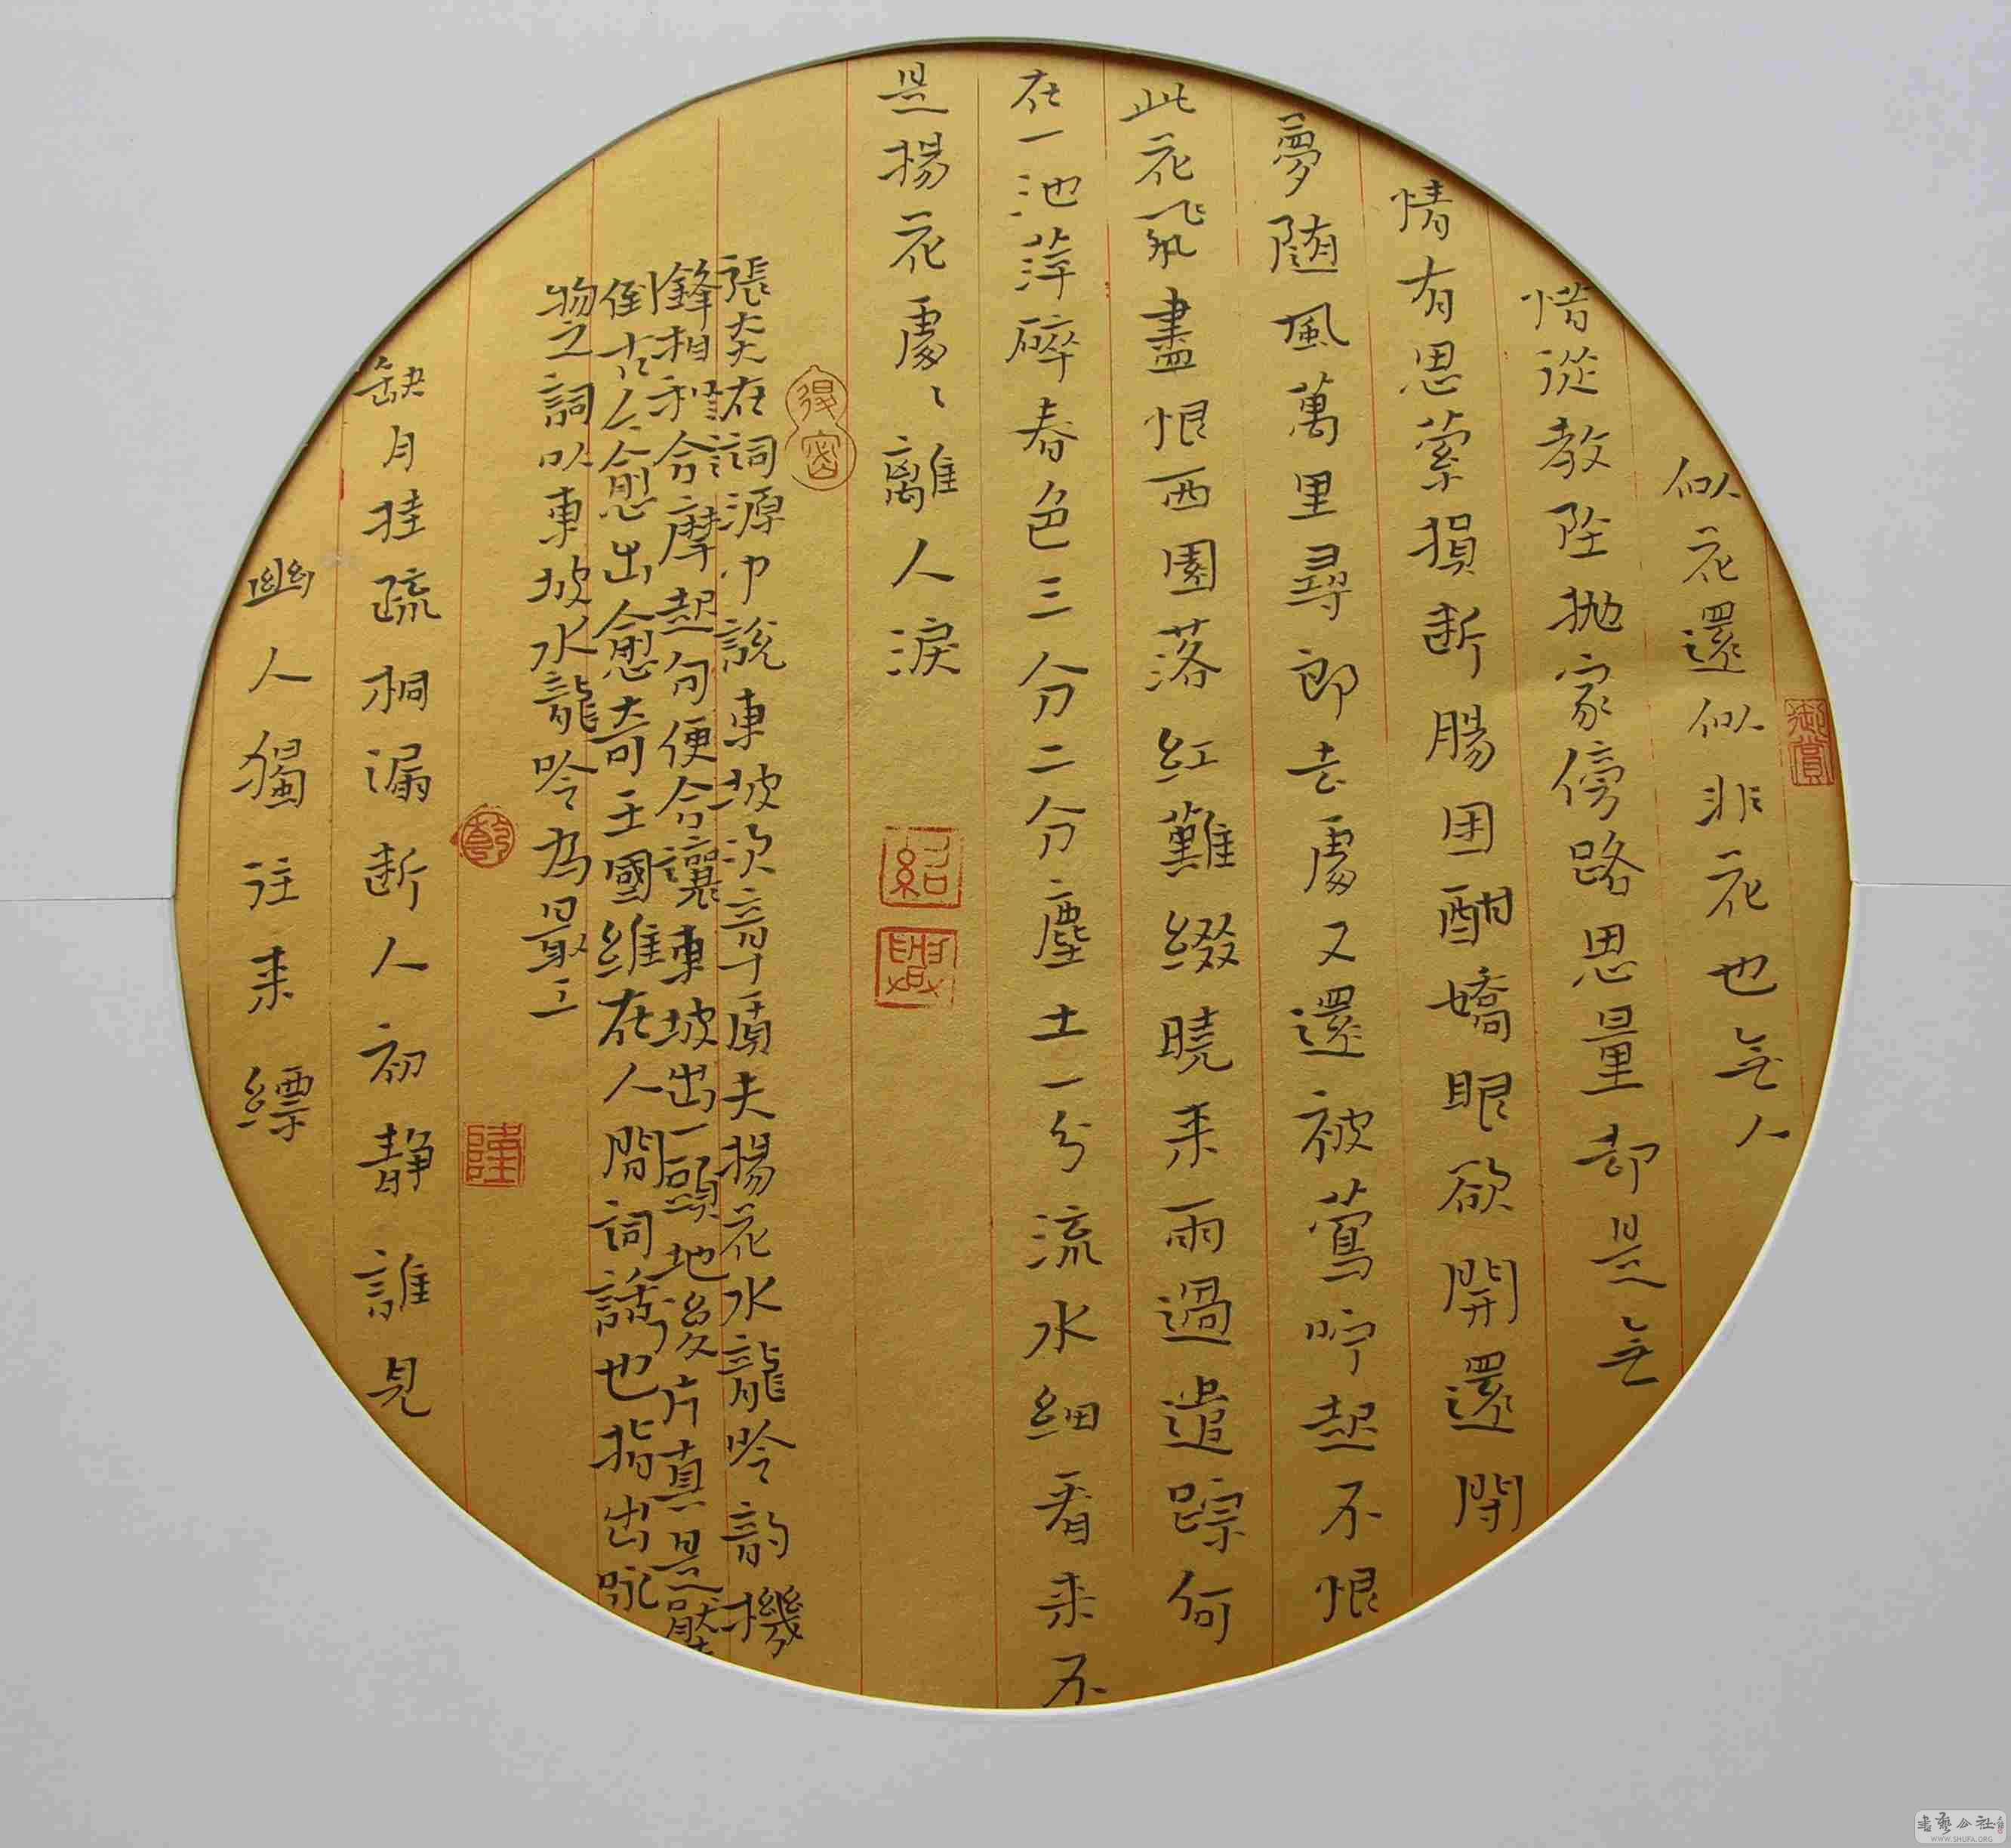 似花還似非花也無人
惜從教墜抛家傍路思量却是無
情有思縈損断腸困酣嬌眼欲開還閉
夢随風萬里尋郎去處又還被鶯呼起不恨
此花飛盡恨西園落紅難綴曉来雨過遺踪何
在一池萍碎春色三分二分塵土一分流水細看来不
是揚花處〻離人淚
張炎在詞源中說東坡次章質夫揚花水龍吟韵機
鋒相和合摩起句便合讓東坡出一頭地後片真是壓
倒古今愈出愈奇王國維在人間詞話也指出咏
物之詞以東坡水龍吟為最工
缺月挂疏桐漏断人初静誰見
幽人獨往来縹
御賞
書藝公社
WWW.SHUFA.ORG